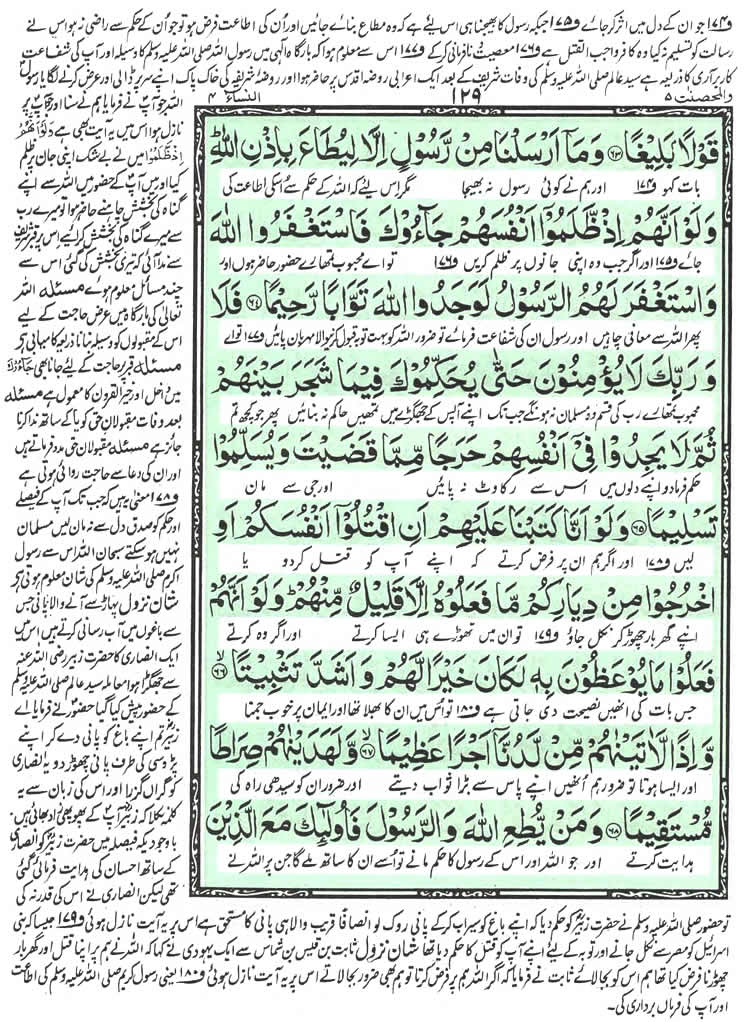 و۱۷۴ جو ان کے دل میں اثر کر جائے و۱۷۵ جبکہ رسول کا بھیجنا ہی اس لئے ہے کہ وہ مطاع بنائے جائیں اور اُن کی اطاعت فرض ہو تو جو اُن کے حکم سے راضی نہ ہو اس نے
رسالت کو تسلیم نہ کیا وہ کافر واجب القتل ہے و۱۷۶ معصیت و نافرمانی کر کے و۱۷۷ اس سے معلوم ہوا کہ بارگاہ الٰہی میں رسول اللہ صلی اللہ علیہ وسلم کا وسیلہ اور آپ کی شفاعت
کار برآری کا ذریعہ ہے سید عالم صلی اللہ علیہ وسلم کی وفات شریف کے بعد ایک اعرابی روضہ اقدس پر حاضر ہوا اور روضہ شریف کی خاک پاک اپنے سر پر ڈالی اور عرض کرنے لگا یا رسول
والمحصنت ۵
۱۲۹
النساء ۴
اللہ جو آپ نے فرمایا ہم نے سنا اور جو آپ پر
نازل ہوا اس میں یہ آیت بھی ہے وَلَوْ اَنَّهُمْ
اِذْ ظَّلَمُوْا میں نے بے شک اپنی جان پر ظلم
کیا اور میں آپ کے حضور میں اللہ سے اپنے
گناہ کی بخشش چاہنے حاضر ہوا تو میرے رب
سے میرے گناہ کی بخشش کرائیے اس پر قبر شریف
سے ندا آئی کہ تیری بخشش کی گئی اس سے
چند مسائل معلوم ہوئے مسئلہ اللہ
تعالیٰ کی بارگاہ میں عرض حاجت کے لیے
اس کے مقبولوں کو وسیلہ بنانا ذریعہ کامیابی ہے
مسئلہ قبر پر حاجت کے لئے جانا بھی جَآءُوْكَ
میں داخل اور خیر القرون کا معمول ہے مسئلہ
بعد وفات مقبولان حق کو یا کے ساتھ ندا کرنا
جائز ہے مسئلہ مقبولان حق مدد فرماتے ہیں
اور ان کی دعا سے حاجت روائی ہوتی ہے
و۱۷۸ معنی یہ ہیں کہ جب تک آپ کے فیصلے
اور حکم کو صدق دل سے نہ مان لیں مسلمان
نہیں ہو سکتے سبحان اللہ اس سے رسول
اکرم صلی اللہ علیہ وسلم کی شان معلوم ہوتی ہے
شان نزول پہاڑ سے آنے والا پانی جس
سے باغوں میں آب رسانی کرتے ہیں اس میں
ایک انصاری کا حضرت زبیر رضی اللہ عنہ
سے جھگڑا ہوا معاملہ سید عالم صلی اللہ علیہ وسلم
کے حضور پیش کیا گیا حضور نے فرمایا اے
زبیر تم اپنے باغ کو پانی دے کر اپنے
پڑوسی کی طرف پانی چھوڑ دو یہ انصاری
کو گراں گزرا اور اس کی زبان سے یہ
کلمہ نکلا کہ زبیر آپ کے پھوپھی زاد بھائی ہیں۔
باوجودیکہ فیصلہ میں حضرت زبیر کو انصاری
کے ساتھ احسان کی ہدایت فرمائی گئی
تھی لیکن انصاری نے اس کی قدر نہ کی
قَوْلًۢا بَلِیْغًا ﴿۶۳﴾ وَمَاۤ اَرْسَلْنَا مِنْ رَّسُوْلٍ اِلَّا لِیُطَاعَ بِاِذْنِ اللّٰهِ ؕ
بات کہو و۱۷۴ اور ہم نے کوئی رسول نہ بھیجا مگر اس لیے کہ اللہ کے حکم سے اُسکی اطاعت کی
وَلَوْ اَنَّهُمْ اِذْ ظَّلَمُوْۤا اَنْفُسَهُمْ جَآءُوْكَ فَاسْتَغْفَرُوا اللّٰهَ
جائے و۱۷۵ اور اگر جب وہ اپنی جانوں پر ظلم کریں و۱۷۶ تو اے محبوب تمہارے حضور حاضر ہوں اور
وَاسْتَغْفَرَ لَهُمُ الرَّسُوْلُ لَوَجَدُوا اللّٰهَ تَوَّابًا رَّحِیْمًا ﴿۶۴﴾ فَلَا
پھر اللہ سے معافی چاہیں اور رسول ان کی شفاعت فرمائے تو ضرور اللہ کو بہت توبہ قبول کرنیوالا مہربان پائیں و۱۷۷ تو اے
وَرَبِّكَ لَا یُؤْمِنُوْنَ حَتّٰى یُحَكِّمُوْكَ فِیْمَا شَجَرَ بَیْنَهُمْ
محبوب تمہارے رب کی قسم وہ مسلمان نہ ہوں گے جب تک اپنے آپس کے جھگڑے میں تمہیں حاکم نہ بنائیں پھر جو کچھ تم
ثُمَّ لَا یَجِدُوْا فِیْۤ اَنْفُسِهِمْ حَرَجًا مِّمَّا قَضَیْتَ وَیُسَلِّمُوْا
حکم فرما دو اپنے دلوں میں اس سے رکاوٹ نہ پائیں اور جی سے مان
تَسْلِیْمًا ﴿۶۵﴾ وَلَوْ اَنَّا كَتَبْنَا عَلَیْهِمْ اَنِ اقْتُلُوْۤا اَنْفُسَكُمْ اَوِ
لیں و۱۷۸ اور اگر ہم ان پر فرض کرتے کہ اپنے آپ کو قتل کر دو یا
اخْرُجُوْا مِنْ دِیَارِكُمْ مَّا فَعَلُوْهُ اِلَّا قَلِیْلٌ مِّنْهُمْ ؕ وَلَوْ اَنَّهُمْ
اپنے گھر بار چھوڑ کر نکل جاؤ و۱۷۹ تو ان میں تھوڑے ہی ایسا کرتے اور اگر وہ کرتے
فَعَلُوْا مَا یُوْعَظُوْنَ بِهٖ لَكَانَ خَیْرًا لَّهُمْ وَاَشَدَّ تَثْبِیْتًا ﴿۶۶﴾
جس بات کی انھیں نصیحت دی جاتی ہے و۱۸۰ تو اس میں ان کا بھلا تھا اور ایمان پر خوب جمنا
وَّاِذًا لَّاٰتَیْنٰهُمْ مِّنْ لَّدُنَّاۤ اَجْرًا عَظِیْمًا ﴿۶۷﴾ وَّلَهَدَیْنٰهُمْ صِرَاطًا
اور ایسا ہوتا تو ضرور ہم انھیں اپنے پاس سے بڑا ثواب دیتے اور ضرور ان کو سیدھی راہ کی
مُّسْتَقِیْمًا ﴿۶۸﴾ وَمَنْ یُّطِعِ اللّٰهَ وَالرَّسُوْلَ فَاُولٰٓئِكَ مَعَ الَّذِیْنَ
ہدایت کرتے اور جو اللہ اور اس کے رسول کا حکم مانے تو اُسے ان کا ساتھ ملے گا جن پر اللہ نے
تو حضور صلی اللہ علیہ وسلم نے حضرت زبیر کو حکم دیا کہ اپنے باغ کو سیراب کر کے پانی روک لو انصافًا قریب والا ہی پانی کا مستحق ہے اس پر یہ آیت نازل ہوئی و۱۷۹ جیسا کہ بنی
اسرائیل کو مصر سے نکل جانے اور توبہ کے لئے اپنے آپ کو قتل کا حکم دیا تھا شان نزول ثابت بن قیس بن شماس سے ایک یہودی نے کہا کہ اللہ نے ہم پر اپنا قتل اور گھر بار
چھوڑنا فرض کیا تھا ہم اس کو بجا لائے ثابت نے فرمایا کہ اگر اللہ ہم پر فرض کرتا تو ہم بھی ضرور بجا لاتے اس پر یہ آیت نازل ہوئی و۱۸۰ یعنی رسول کریم صلی اللہ علیہ وسلم کی اطاعت
اور آپ کی فرماں برداری کی۔